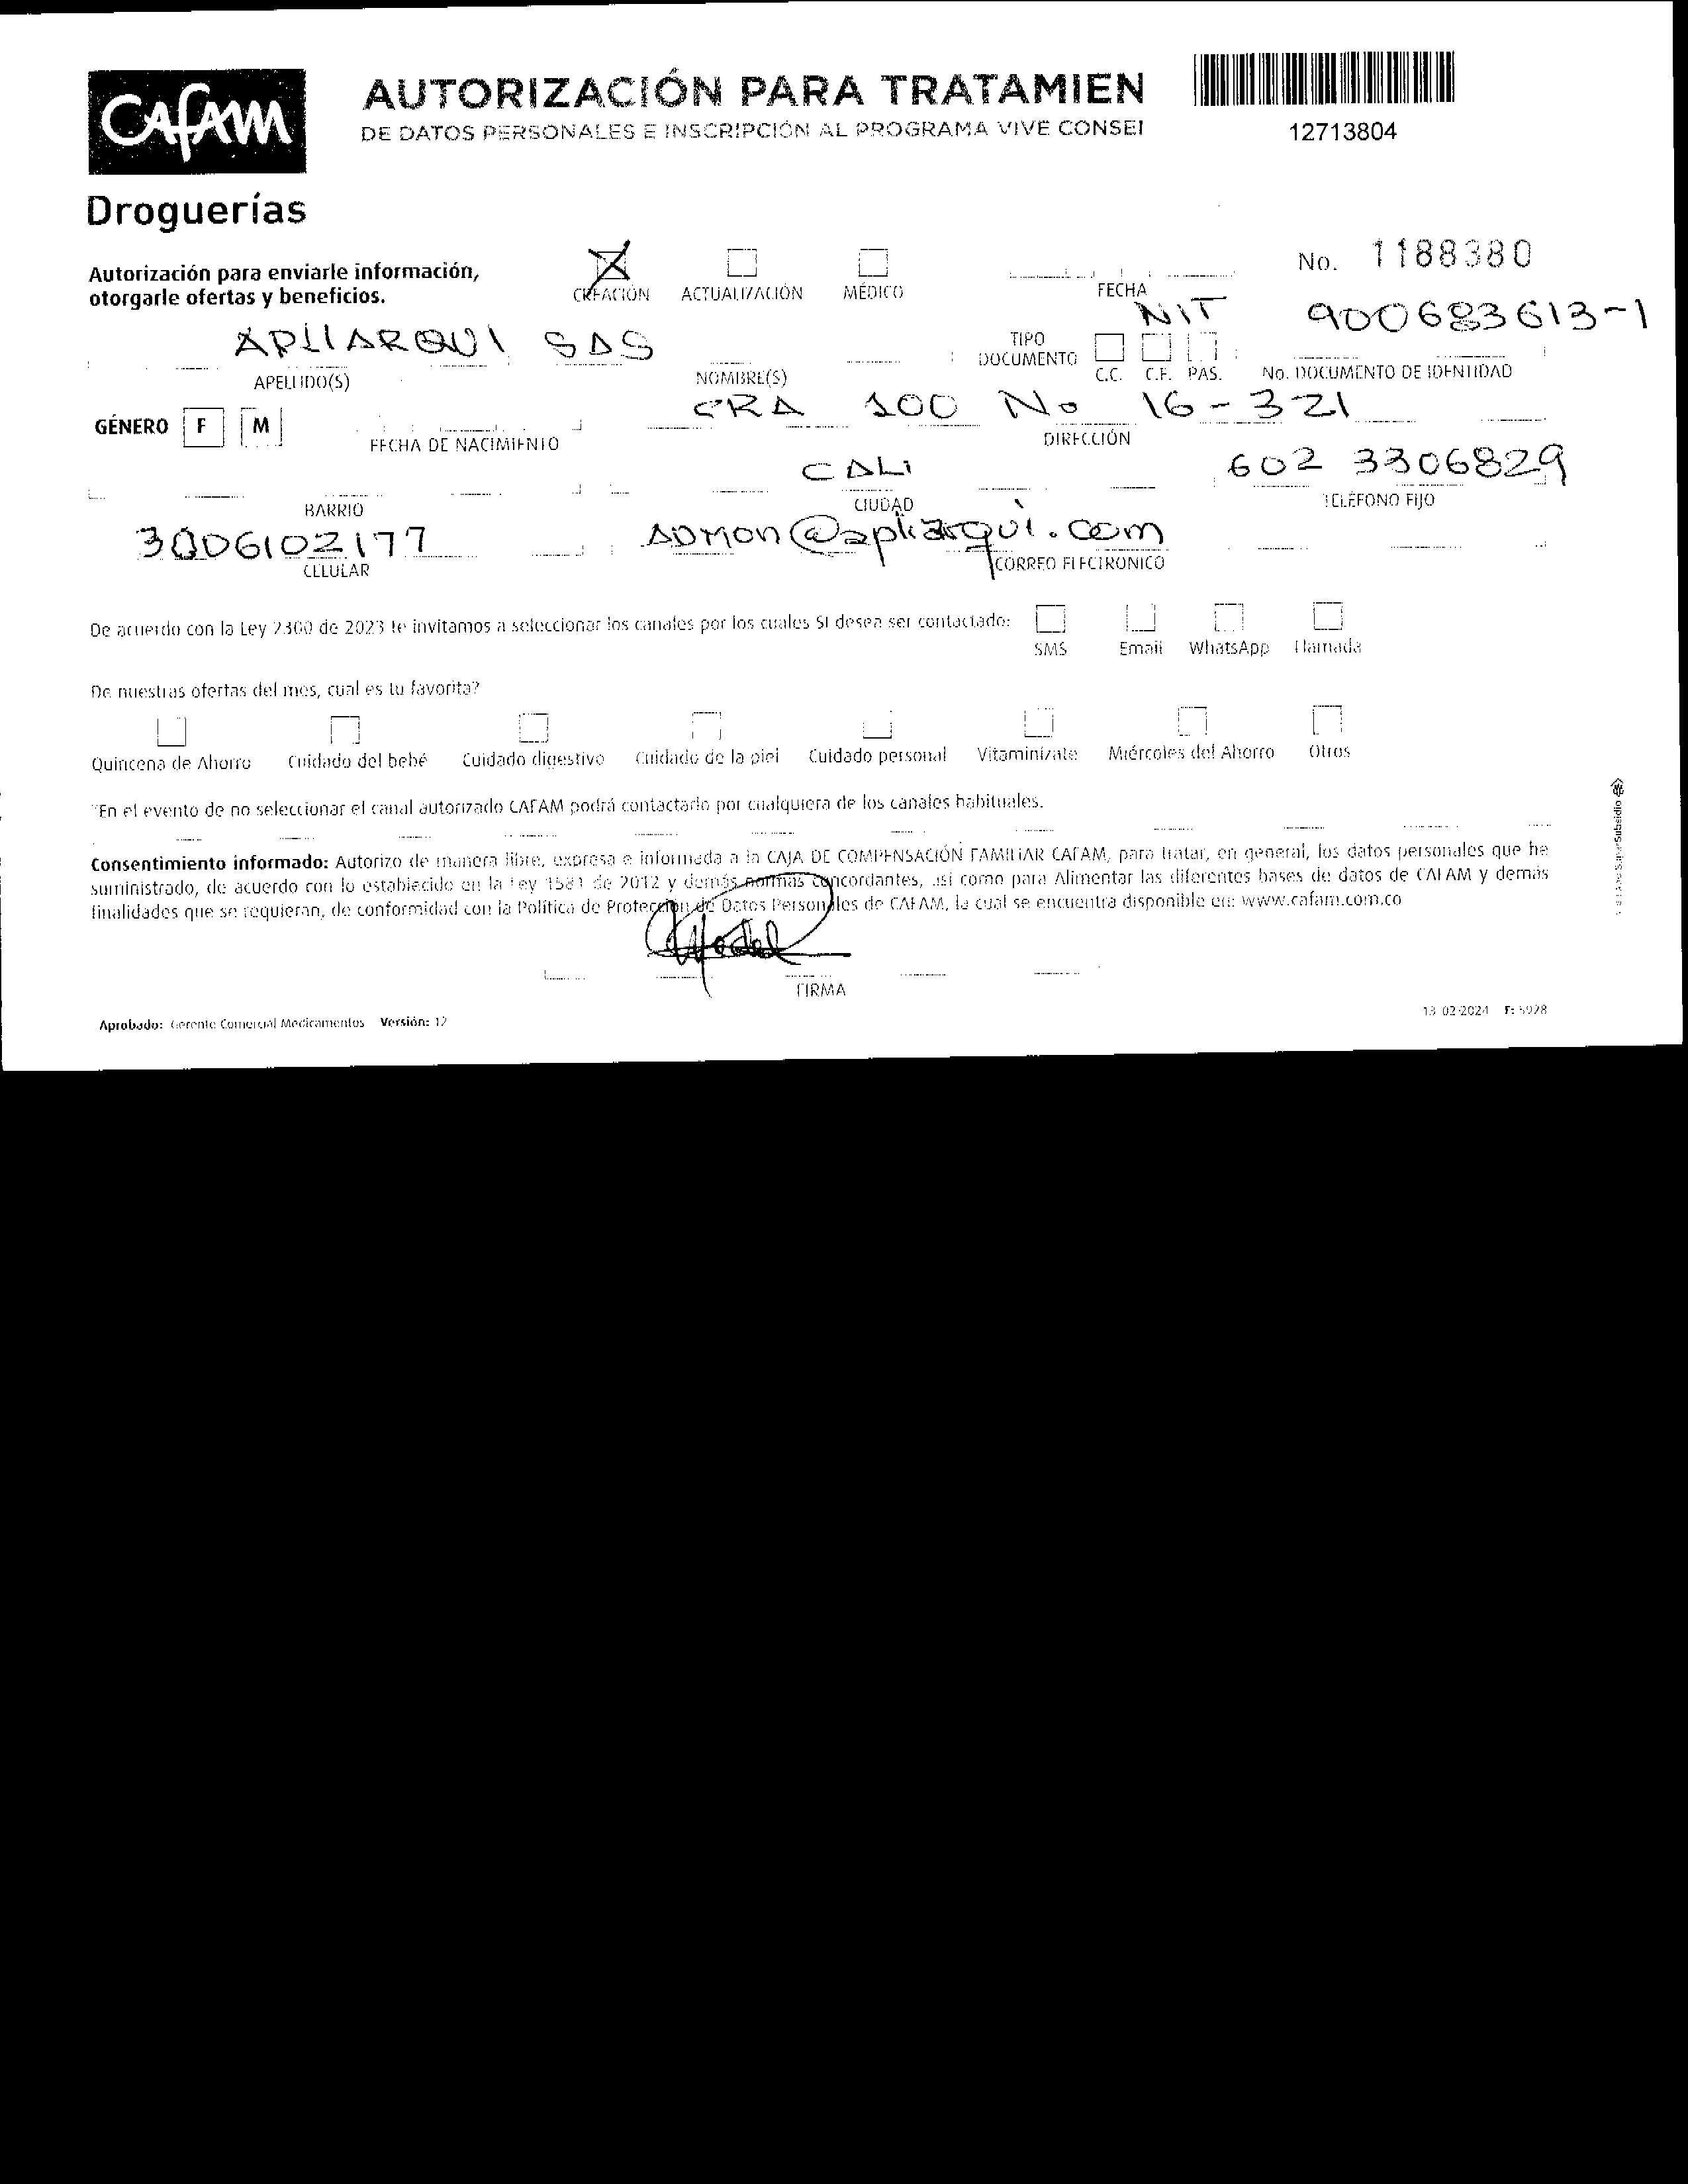 CAFAM
AUTORIZACIÓN PARA TRATAMIEN
DE DATOS PERSONALES E INSCRIPCIÓN AL PROGRAMA VIVE CONSEI
12713804
Droguerías
Autorización para enviarle información,
otorgarle ofertas y beneficios.
CREACIÓN ACTUALIZACIÓN MÉDICO
FECHA
No. 1188380
APLIARQUI SAS
NIT 900683613-1
APELLIDO(S) NOMBRE(S)
TIPO DOCUMENTO C.C. C.E. PAS.
No. DOCUMENTO DE IDENTIDAD
CRA 100 No 16-321
GÉNERO F M
FECHA DE NACIMIENTO DIRECCIÓN
CALI 602 3306829
BARRIO CIUDAD TELÉFONO FIJO
3006102177 ADMON@apliarqui.com
CELULAR CORREO ELECTRONICO
De acuerdo con la Ley 2300 de 2023 te invitamos a seleccionar los canales por los cuales SI desea ser contactado:
SMS Email WhatsApp Llamada
De nuestras ofertas del mes, cual es tu favorita?
Quincena de Ahorro Cuidado del bebé Cuidado digestivo Cuidado de la piel Cuidado personal Vitamínizate Miércoles del Ahorro Otros
*En el evento de no seleccionar el canal autorizado CAFAM podrá contactarlo por cualquiera de los canales habituales.
Consentimiento informado: Autorizo de manera libre, expresa e informada a la CAJA DE COMPENSACIÓN FAMILIAR CAFAM, para tratar, en general, los datos personales que he
suministrado, de acuerdo con lo establecido en la Ley 1581 de 2012 y demás normas concordantes, así como para Alimentar las diferentes bases de datos de CAFAM y demás
finalidades que se requieran, de conformidad con la Política de Protección de Datos Personales de CAFAM, la cual se encuentra disponible en: www.cafam.com.co
FIRMA
Aprobado: Gerente Comercial Medicamentos Versión: 12
13-02-2024 F: 5928